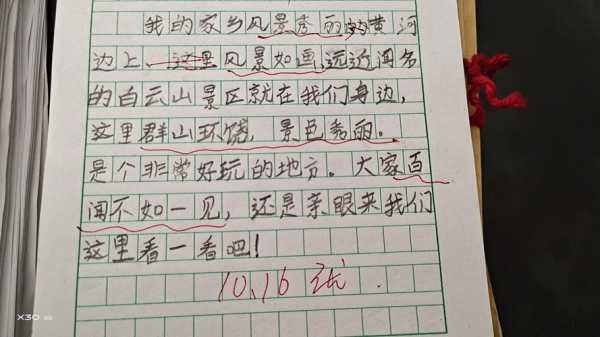 我的家乡风景秀丽的黄河
边上、这里风景如画,远近闻名
的白云山景区就在我们身边,
这里群山环饶,景色秀丽。
是个非常好玩的地方。大家百
闻不如一见,还是亲眼来我们
这里看一看吧!
10.16
X30